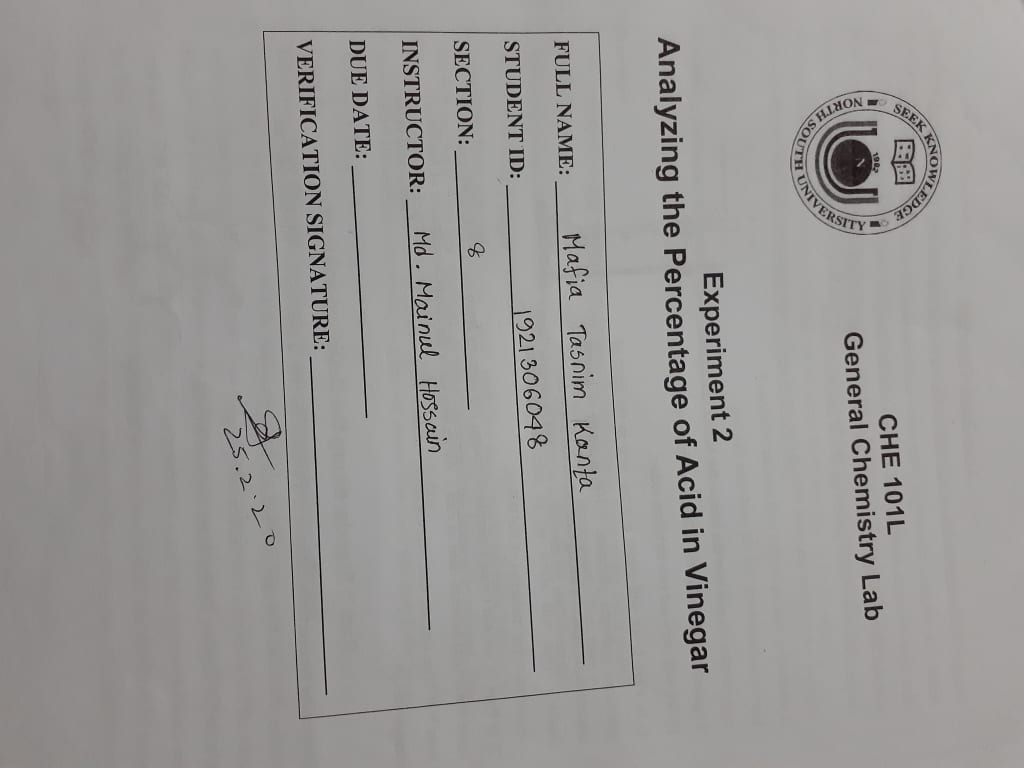 SEEK KNOWLEDGE
1992
N
NORTH SOUTH UNIVERSITY
CHE 101L
General Chemistry Lab
Experiment 2
Analyzing the Percentage of Acid in Vinegar
FULL NAME: Mafia Tasnim Kanta
STUDENT ID: 1921306048
SECTION: 8
INSTRUCTOR: Md. Mainul Hossain
DUE DATE:
VERIFICATION SIGNATURE:
25.2.20